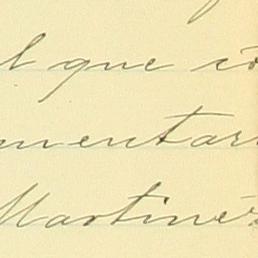 l que co
mentar
Martinez